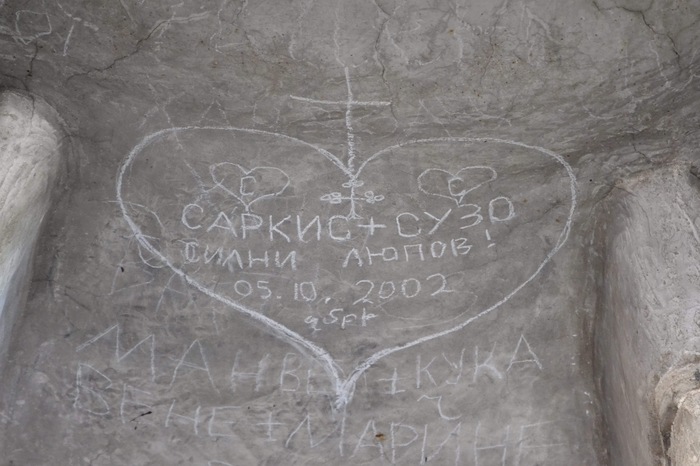 С С
САРКИС+СУЗО
СИЛНИ ЛЮПОВ!
05.10.2002
МАНВЕЛ+КУКА
ВЕНЕ+МАРИНЕ